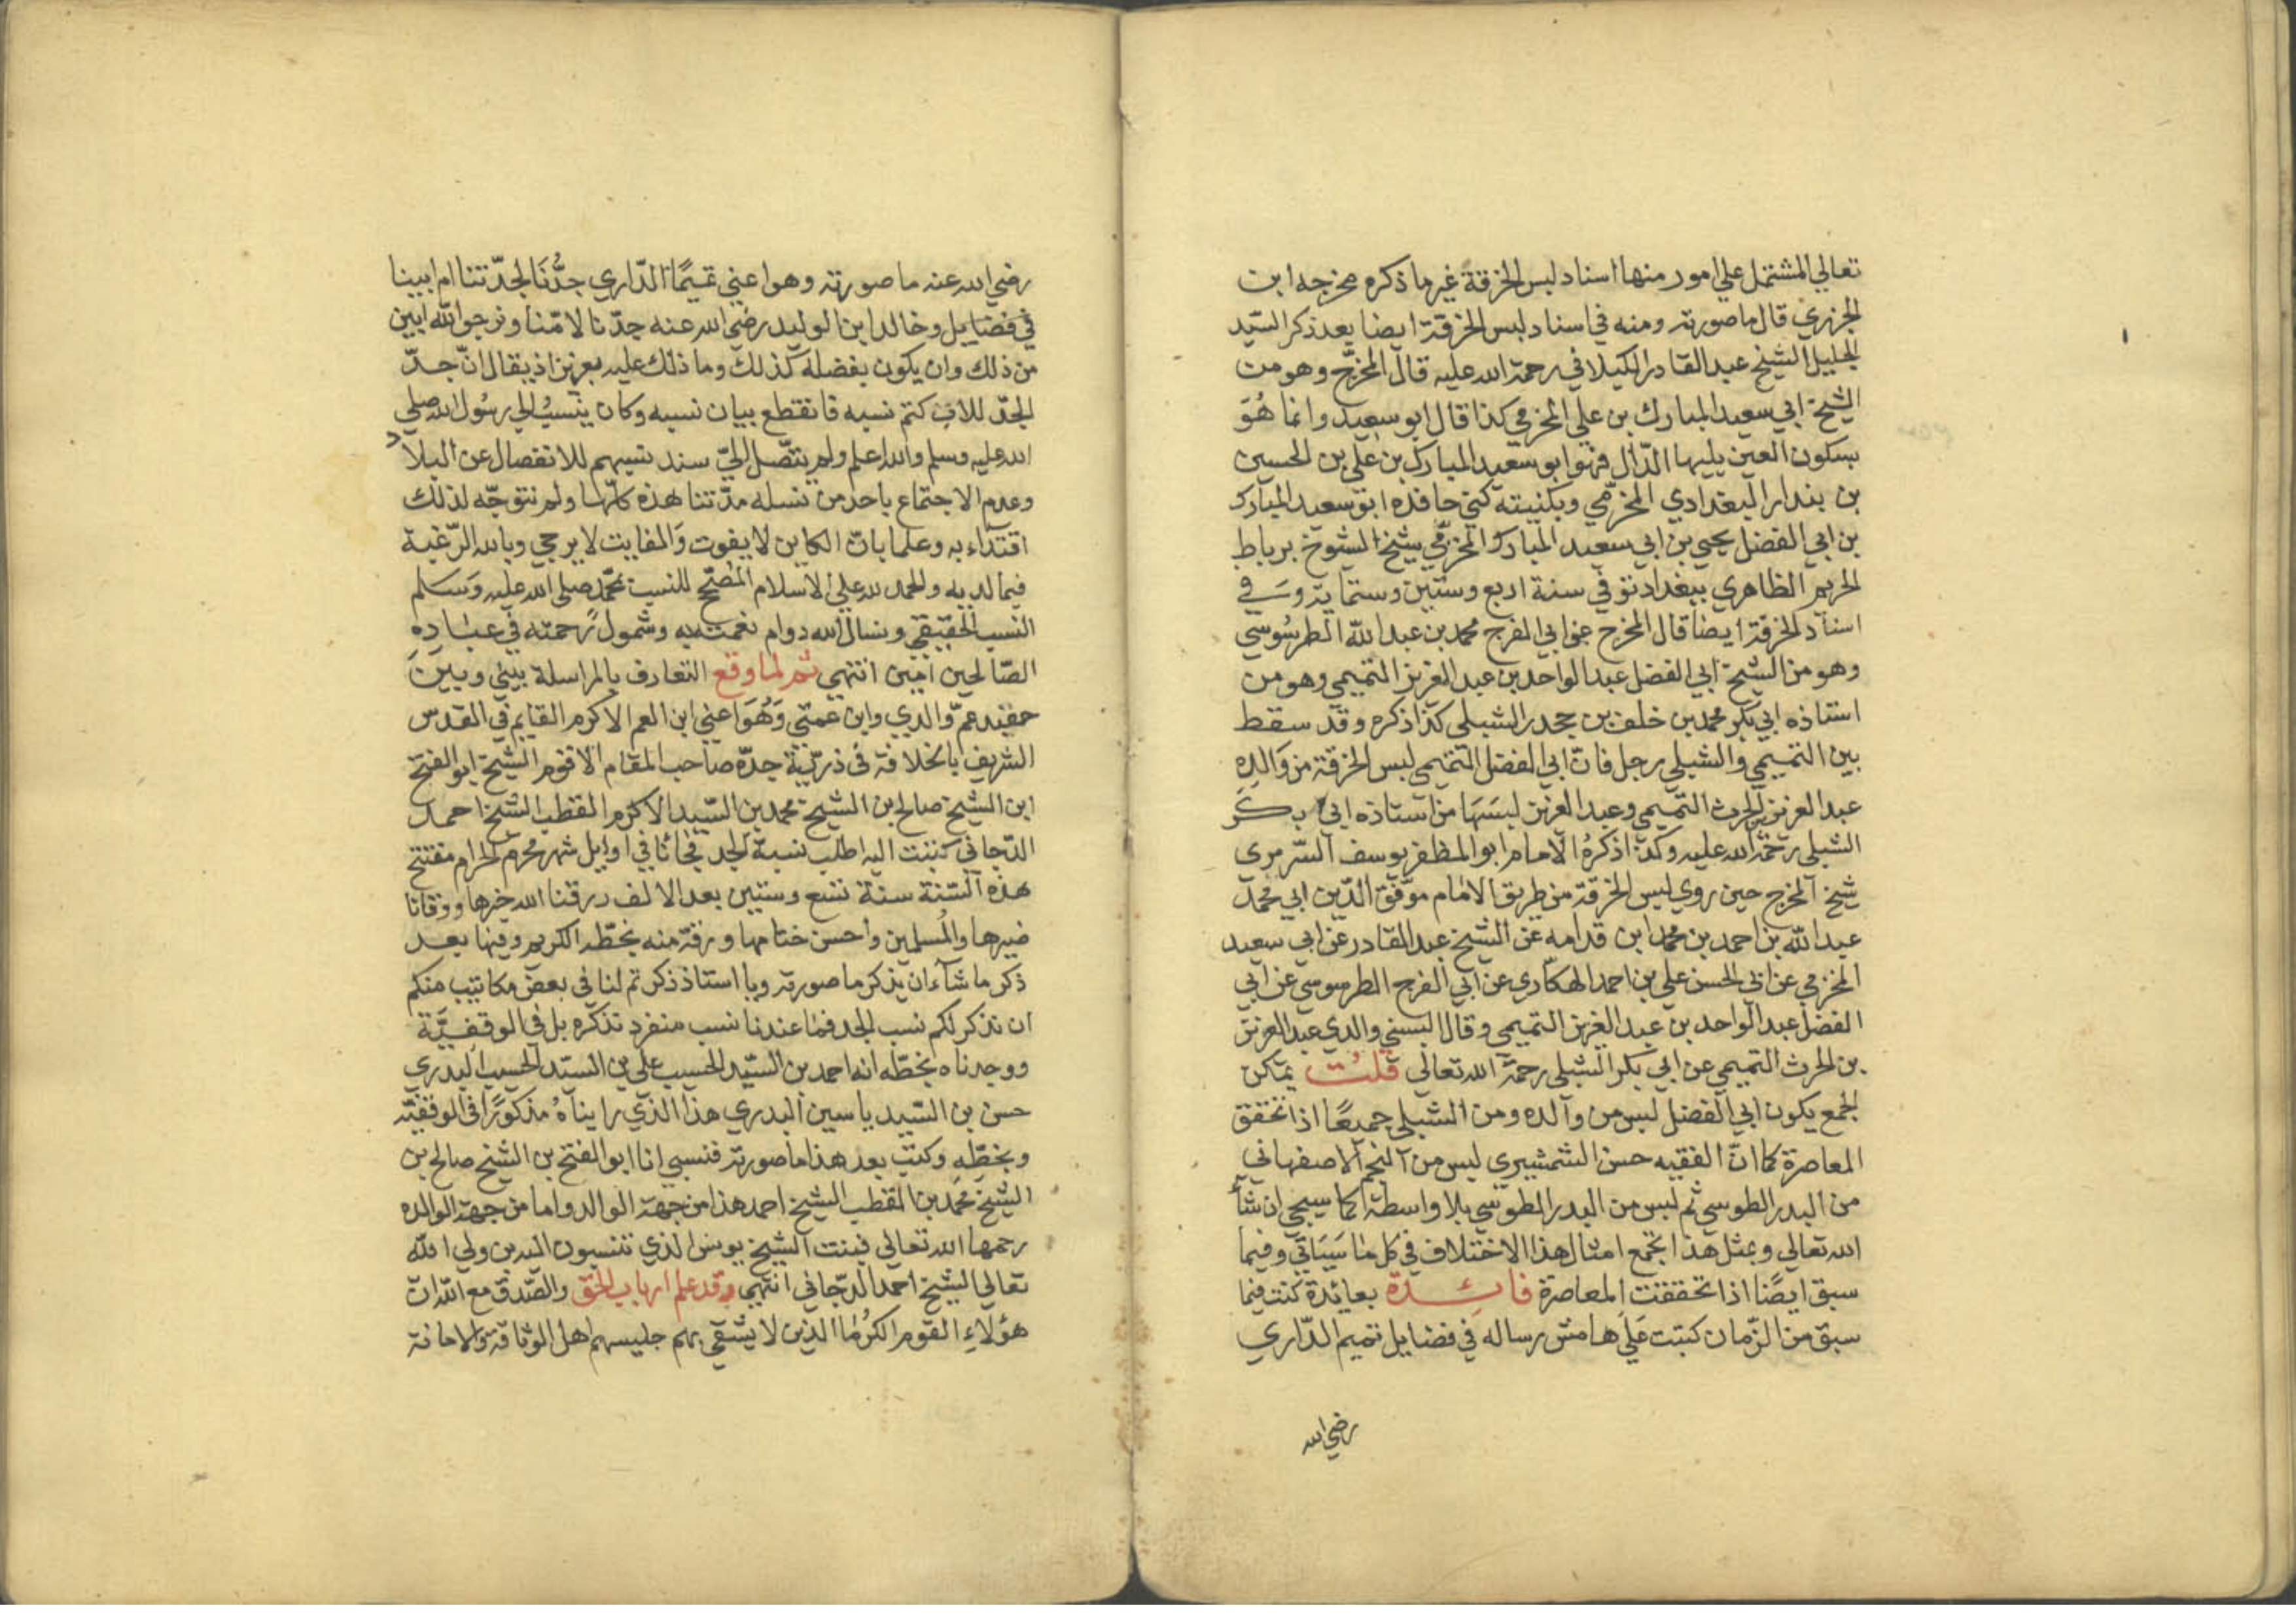 تعالي المشتمل علي امور منها اسناد لبس الخرقة غير ما ذكره مخرجه ابن
الجزري قال ما صورته ومنه في اسناد لبس الخرقة ايضا بعد ذكر السّيد
الجليل الشيخ عبد القادر الكيلاني رحمة الله عليه قال المخرّج وهو من
الشيخ ابي سعيد المبارك بن علي المخرمي كذا قال ابو سعيد وانما هُوَ
بسكون العين يليها الدّال فهو ابو سعيد المبارك بن علي بن الحسين
بن بندار البغدادي المخرّمي وبكنيته كني حافده ابو سعيد المبارك
بن ابي الفضل يحيي بن ابي سعيد المبارك المخرّمي شيخ الشيوخ برباط
الحريم الظاهري ببغداد توفي سنة اربع وستين وستماية وسَ في
اسناد الخرقة ايضا قال المخرج عن ابي الفرج محمد بن عبد الله الطرسُوسي
وهو من الشيخ ابي الفضل عبد الواحد بن عبد العزيز التميمي وهو من
استاذه ابي بكر محمد بن خلف بن جحدر الشبلي كذا ذكره وقد سقط
بين التميمي والشبلي رجل فانّ ابي الفضل التميمي لبس الخرقة من وَالِدِهِ
عبد العزيز بن الحرث التميمي وعبد العزيز لبسَهَا من استاذه ابي بكر
الشبلي رحمة الله عليه وكذا ذكرهُ الامام ابو المظفر يوسف السّرمري
شيخ المخرج حين روي لبس الخرقة من طريق الامام موّفق الدّين ابي محمد
عبد الله بن احمد بن محمد ابن قدامه عن الشيخ عبد القادر عن ابي سعيد
المخزمي عن ابي الحسن علي بن احمد الهكّاري عن ابي الفرج الطرسوسي عن ابي
الفضل عبد الواحد بن عبد العزيز التميمي وقال البسني والدي عبد العزيز
بن الحرث التميمي عن ابي بكر الشبلي رحمة الله تعالي قلتُ يمكن
الجمع يكون ابي الفضل لبس من والده ومن الشبلي جميعًا اذا تحقق
المعاصرة كما انّ الفقيه حسن الشمشيري لبس من النجم الاصفهاني
من البدر الطوسي ثم لبس من البدر الطوسي بلا واسطة كما سيجي ان شآء
الله تعالي وبمثل هذا يجمع امثال هذا الاختلاف في كل ما سَيَاتي وفيما
سبق ايضًا اذا تحققت المعاصرة فائدة بعائدة كنت فيما
سبق من الزّمان كتبت عَلَي هامش رساله في فضايل تميم الدّاري
رضي الله
رضي الله عنه ما صورته وهو اعني تميمًا الدّاري جدُّنَا لجدّتنا ام ابينا
في فضايل وخالد ابن الوليد رضي الله عنه جدّنا لامّنا ونرجو الله ابين
من ذلك وان يكون بفضله كذلك وما ذلك عليه بعزيز اذ يقال انّ جدّ
الجدّ للاب كتم نسبه فانقطع بيان نسبه وكان ينسبُ الي رسُول الله صلي
الله عليه وسلم والله اعلم ولم يتّصل اليّ سند نسبهم للانفصال عن البلاد
وعدم الاجتماع باحد من نسله مدّتنا هذه كلّها ولم نتوجّه لذلك
اقتداء به وعلما بانّ الكاين لا يفوت وَالفايت لا يرجي وبالله الرّغبة
فيما لديه والحمد لله علي الاسلام المصحّح للنسب بمحّمد صلي الله عليه وَسَلم
النسب الحقيقي ونسال الله دوام نعمته به وشمول رحمته في عبَادِهِ
الصّالحين امين انتهي ثم لما وقع التعارف بالمراسلة بيني وبين
حفيد عمّ والدي وابن عمتي وَهُوَ اعني ابن العم الاكرم القايم في القدس
الشريف بالخلافة في ذرّيّة جدّه صاحب المقام الاقوم الشيخ ابو الفتح
ابن الشيخ صالح بن الشيخ محمد بن السّيد الاكرم القطب الشيخ احمد
الدّجاني كتبت اليه اطلب نسبة الجد فجائنا في اوايل شهر محرم الحرام مفتتح
هذه السّنة سنة تسع وستين بعد الالف رزقنا الله خيرها ووقانا
ضيرها والمُسلمين واحسن ختامها ورقة منه بخطّه الكريم وفيها بعد
ذكر ما شاء ان يذكر ما صورته ويا استاذ ذكرتم لنا في بعض مكاتيب منكم
ان نذكر لكم نسب الجد فما عندنا نسب منفرد نذكره بل في الوقفيَّة
ووجدناه بخطّه انه احمد بن السّيد الحسيب علي بن السّيد الحسيب البدري
حسن بن السّيد ياسين البدري هذا الذي رايناهُ مذكورًا في الوقفيّة
وبخطّه وكتب بعد هذا ما صورته فنسبي انا ابو الفتح بن الشيخ صالح بن
الشيخ محمد بن القطب الشيخ احمد هذا من جهة الوالد واما من جهة الوالده
رحمها الله تعالي فبنت الشيخ يونس الذي تنسبون اليه بن ولي الله
تعالي الشيخ احمد الدّجاني انتهي وقد علم ارباب الحق والصّدق مع الله انّ
هؤلاءِ القوم الكرُما الذين لا يشقي بهم جليسهم اهل الوثاقة والامانة